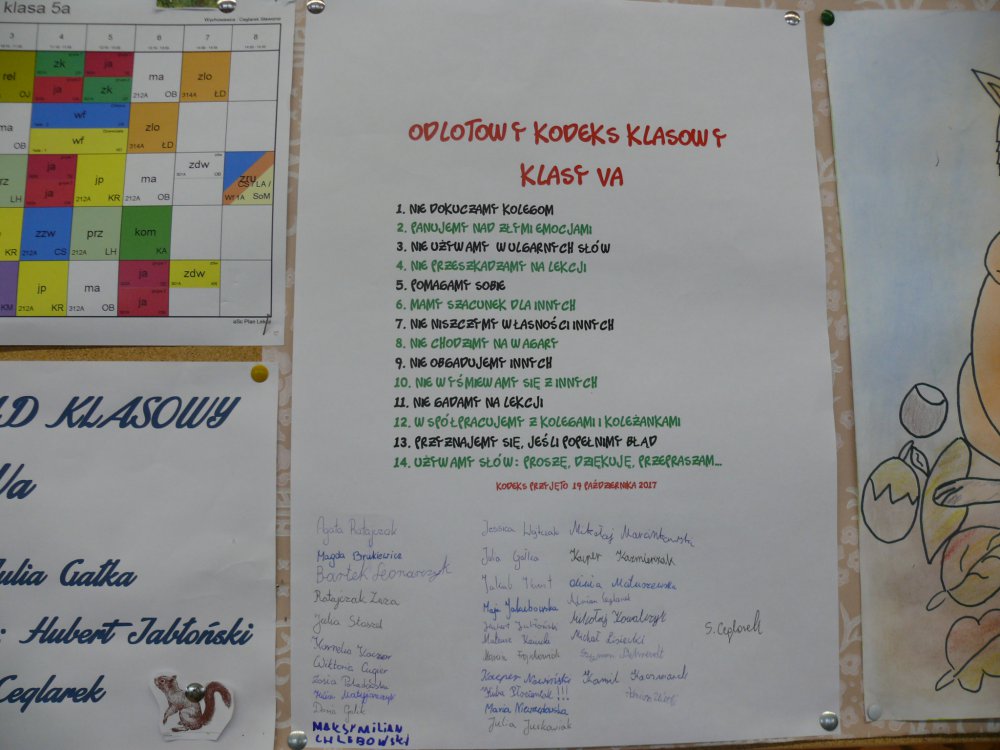 klasa 5a
3 4 5 6 7 8
rel zk ja ma zlo
ja zk 212A OB 314A ŁD
ma wf zlo
OB wf 314A ŁD
rz ja jp ma zdw zru
LH ja 212A KR 212A OB CS ŁA / SoM
KR zzw prz kom
212A CS 212A LH KA
KM jp ma ja zdw
212A KR 312A OB ja
aSc Plan Lekcji
AD KLASOWY
Va
Julia Gałka
: Hubert Jabłoński
Ceglarek
ODLOTOWY KODEKS KLASOWY
KLASY VA
1. NIE DOKUCZAMY KOLEGOM
2. PANUJEMY NAD ZŁYMI EMOCJAMI
3. NIE UŻYWAMY WULGARNYCH SŁÓW
4. NIE PRZESZKADZAMY NA LEKCJI
5. POMAGAMY SOBIE
6. MAMY SZACUNEK DLA INNYCH
7. NIE NISZCZYMY WŁASNOŚCI INNYCH
8. NIE CHODZIMY NA WAGARY
9. NIE OBGADUJEMY INNYCH
10. NIE WYŚMIEWAMY SIĘ Z INNYCH
11. NIE GADAMY NA LEKCJI
12. WSPÓŁPRACUJEMY Z KOLEGAMI I KOLEŻANKAMI
13. PRZYZNAJEMY SIĘ, JEŚLI POPEŁNIMY BŁĄD
14. UŻYWAMY SŁÓW: PROSZĘ, DZIĘKUJĘ, PRZEPRASZAM...
KODEKS PRZYJĘTO 19 PAŹDZIERNIKA 2017
Agata Ratajczak
Magda Brukiewicz
Bartek Leonarczyk
Ratajczak Zuza
Julia Staszel
Kornelia Kaczor
Wiktoria Cugier
Zosia
Julia
Daria
MAKSYMILIAN
CHLEBOWSKI
Jessica Wojtczak
Julia Gałka
Jakub
Maja Jakubowska
Hubert Jabłoński
Kacper
Kuba !!!
Maria
Julia Juskowiak
Mikołaj Marcinkowski
Kacper Kaźmierzak
Oliwia Matuszewska
Mikołaj Kowalczyk
Michał Lisiecki
Szymon
Kamil Kaczmarek
S. Ceglarek